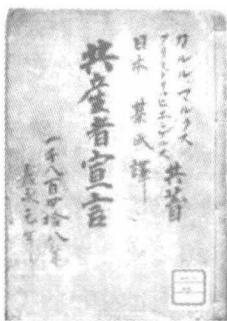 カルル、マルクス
フリードリヒ、エンゲルス
共著
日本 葉氏譯
共産者宣言
一千八百四拾八年
嘉永元年